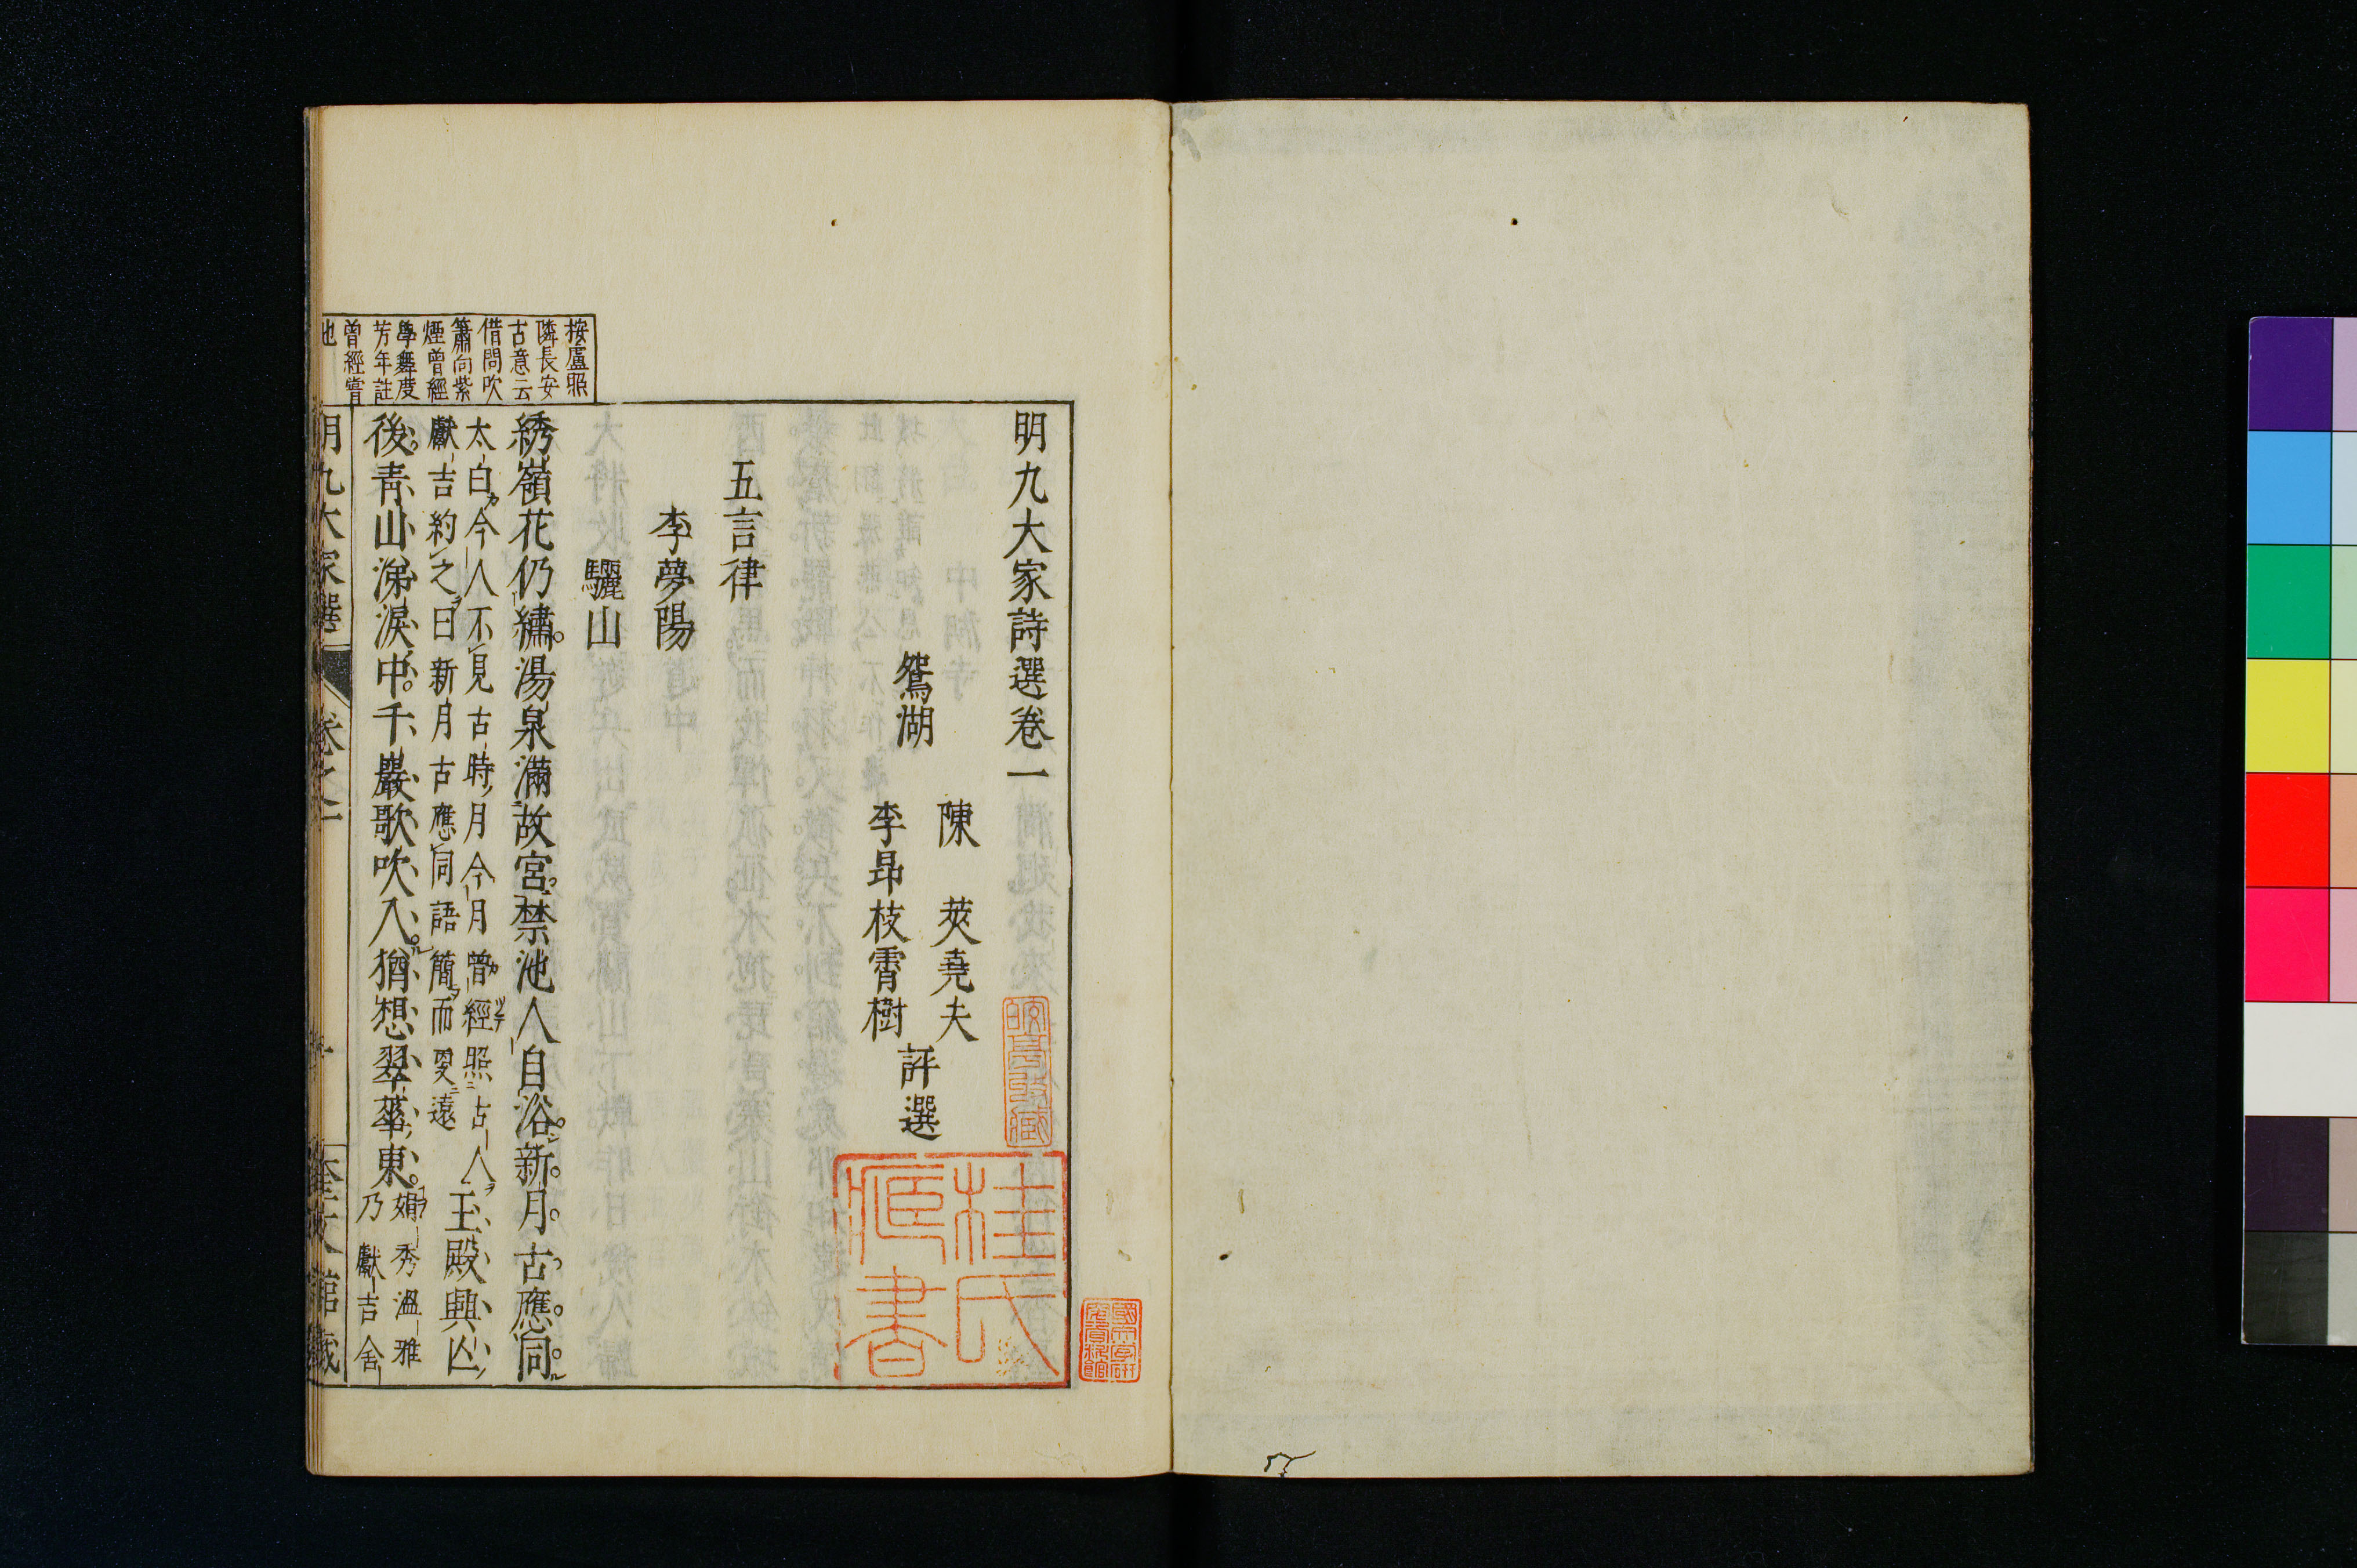 明九大家詩選卷一
鴛湖
陳 莢堯夫
李昂枝霄樹
評選
五言律
李夢陽
驪山
綉嶺花仍繡湯泉滿故宮禁池人自浴新月古應同
太白今人不見古時月今月曾經照古人
獻吉約之曰新月古應同語簡而更遠
王殿興亾
後青山涕淚中千巖歌吹入猶想翠華東
嫺秀溫雅
乃獻吉舍
按盧照
隣長安
古意云
借問吹
簫向紫
煙曾經
學舞度
芳年註
曾經嘗
也
明九大家選
卷之一
一
奎文館藏
桂氏
藏書